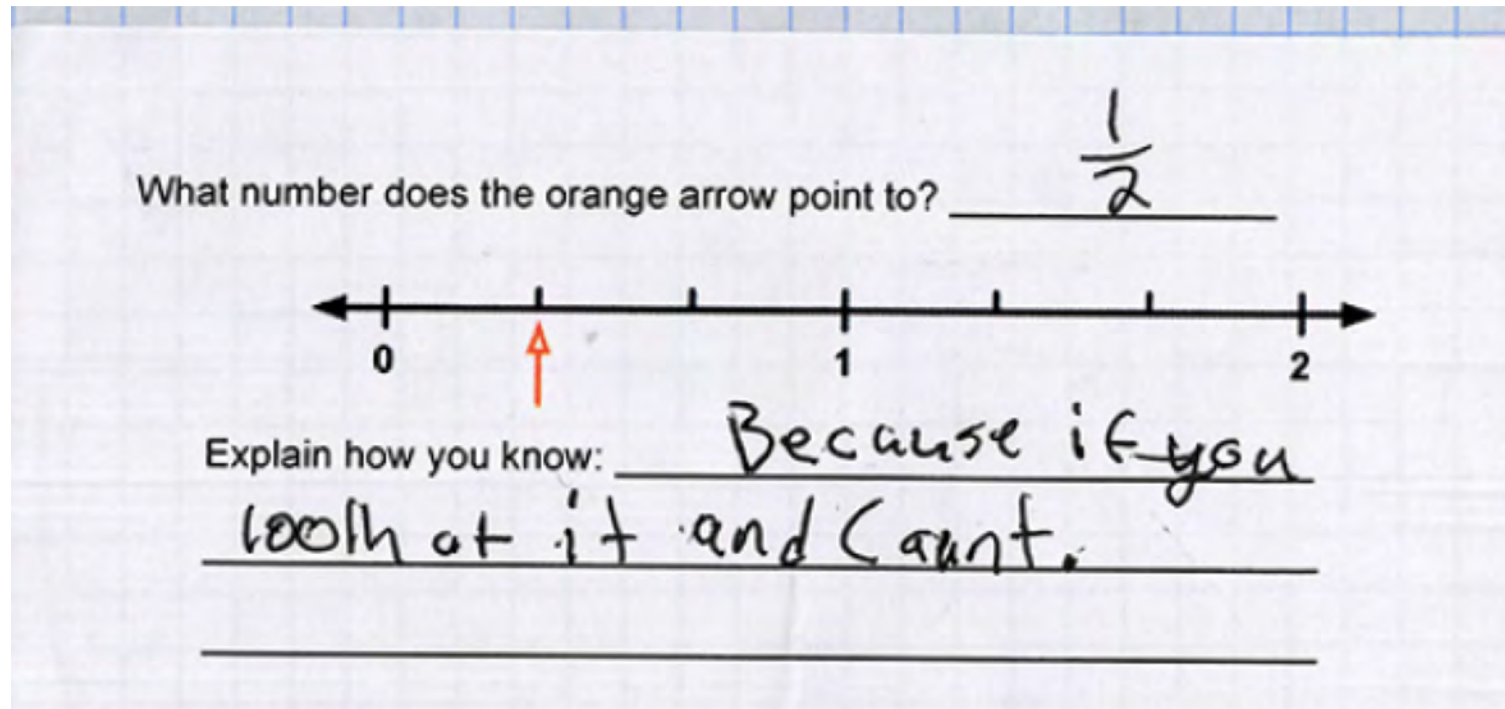 What number does the orange arrow point to? 1/2
0 1 2
Explain how you know: Because if you
look at it and Caunt.